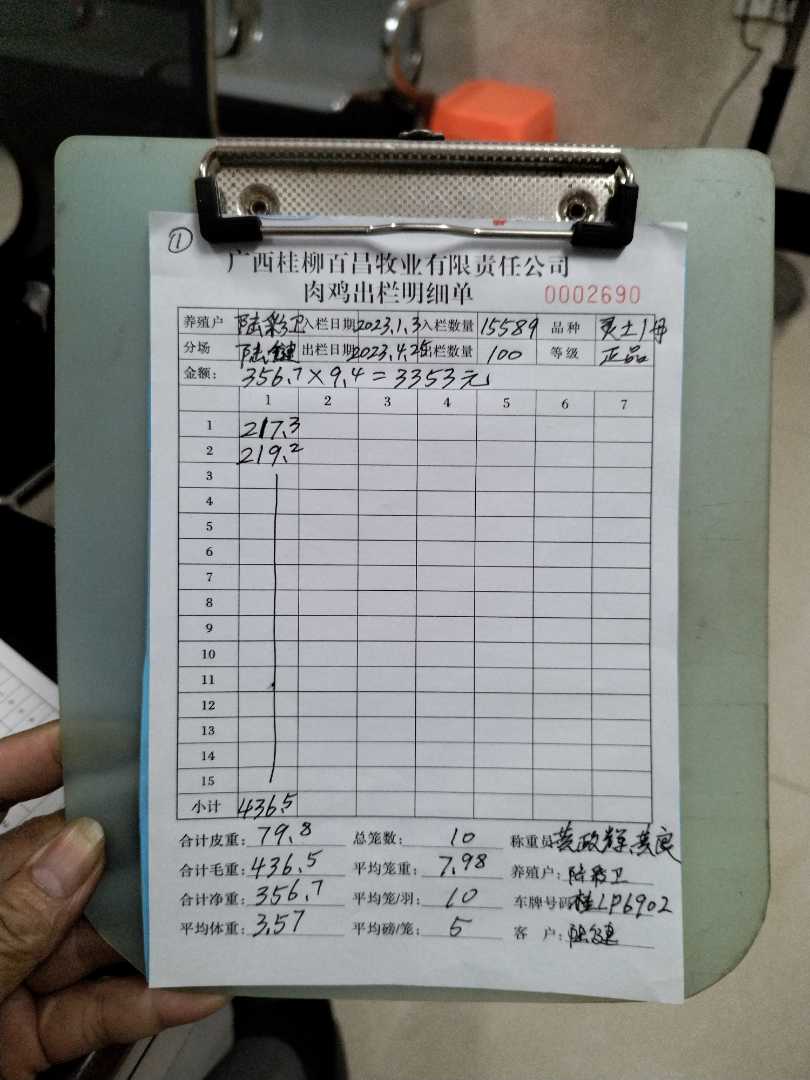 ①
广西桂柳百昌牧业有限责任公司
肉鸡出栏明细单 0002690
养殖户 陆彩卫 入栏日期 2023.1.3 入栏数量 15589 品种
分场 陆健 出栏日期 2023.4.25 出栏数量 100 等级 正品
金额: 356.7×9.4=3353元
1 2 3 4 5 6 7
1 217.3
2 219.2
3
4
5
6
7
8
9
10
11
12
13
14
15
小计 436.5
合计皮重: 79.8 总笼数: 10 称重员 黄政辉
合计毛重: 436.5 平均笼重: 7.98 养殖户: 陆彩卫
合计净重: 356.7 平均笼/羽: 10 车牌号码 桂LP6902
平均体重: 3.57 平均磅/笼: 5 客户: 陆健